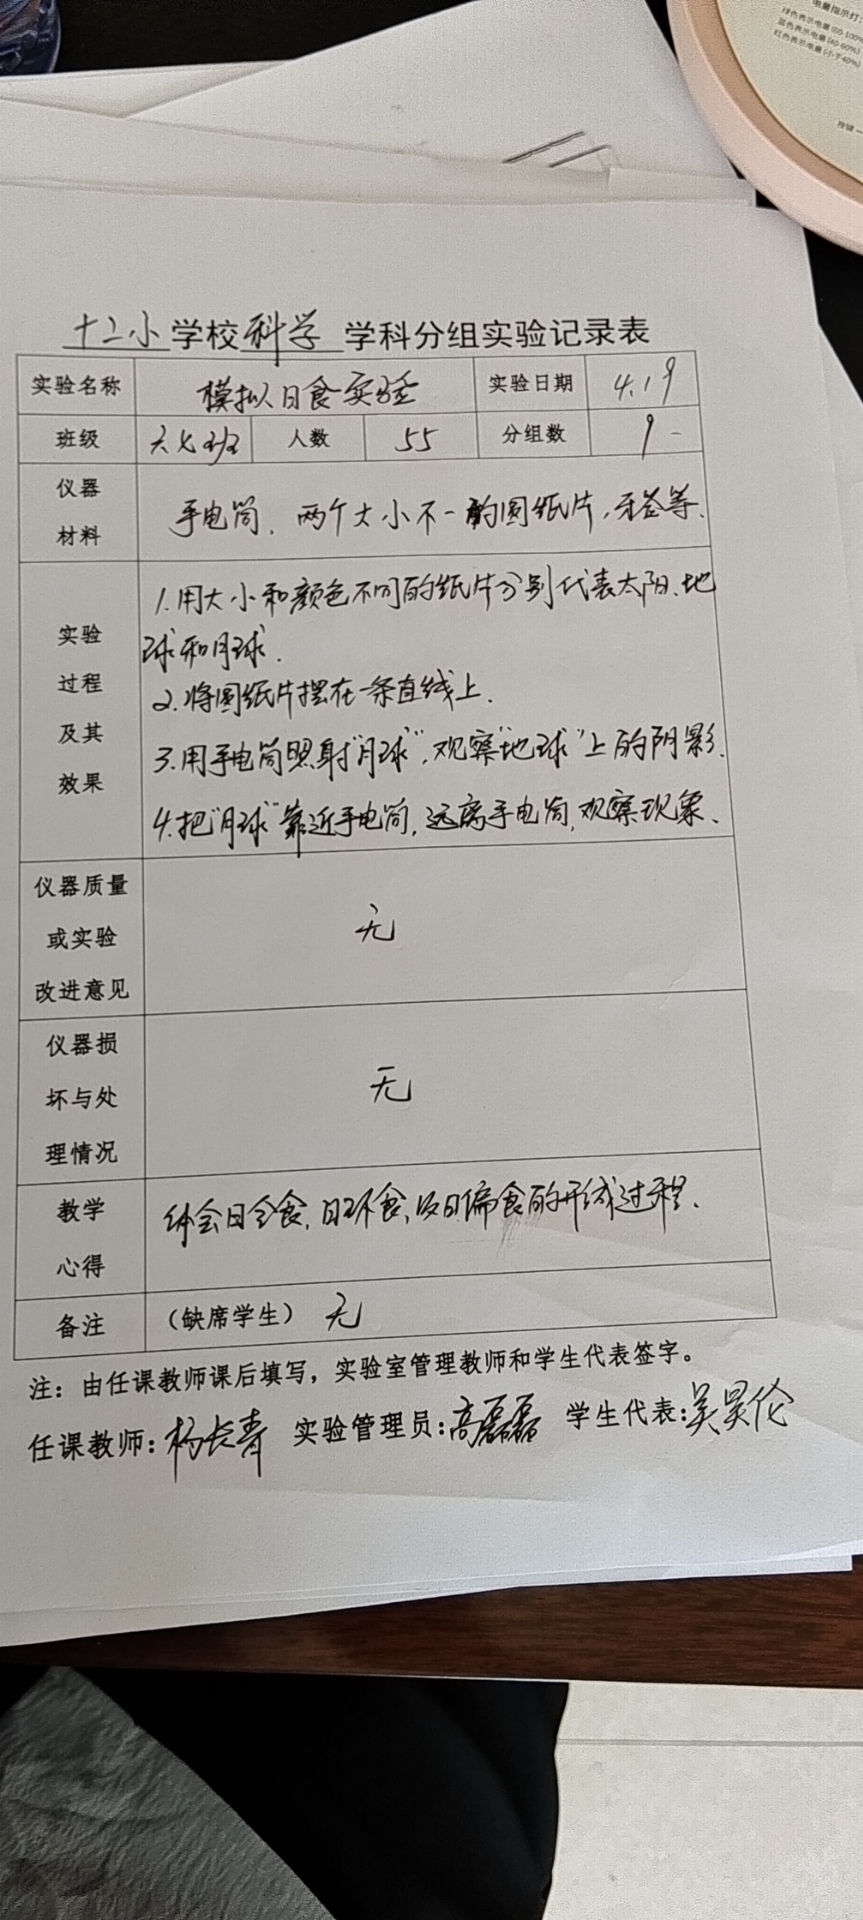 电量指示灯
绿色表示电量(60-100%
蓝色表示电量(40-60%)
红色表示电量(小于40%)
按键一
十二小学校科学学科分组实验记录表
实验名称 模拟日食实验 实验日期 4.19
班级 六七班 人数 55 分组数 9
仪器材料 手电筒、两个大小不一的圆纸片,牙签等.
实验过程及其效果
1.用大小和颜色不同的纸片分别代表太阳、地
球和月球.
2.将圆纸片摆在一条直线上.
3.用手电筒照射"月球",观察"地球"上的阴影.
4.把"月球"靠近手电筒,远离手电筒,观察现象、
仪器质量或实验改进意见 无
仪器损坏与处理情况 无
教学心得 体会日全食,日环食,及日偏食的形成过程.
备注 (缺席学生) 无
注:由任课教师课后填写,实验室管理教师和学生代表签字。
任课教师:杨长青 实验管理员:高磊磊 学生代表:吴昊伦